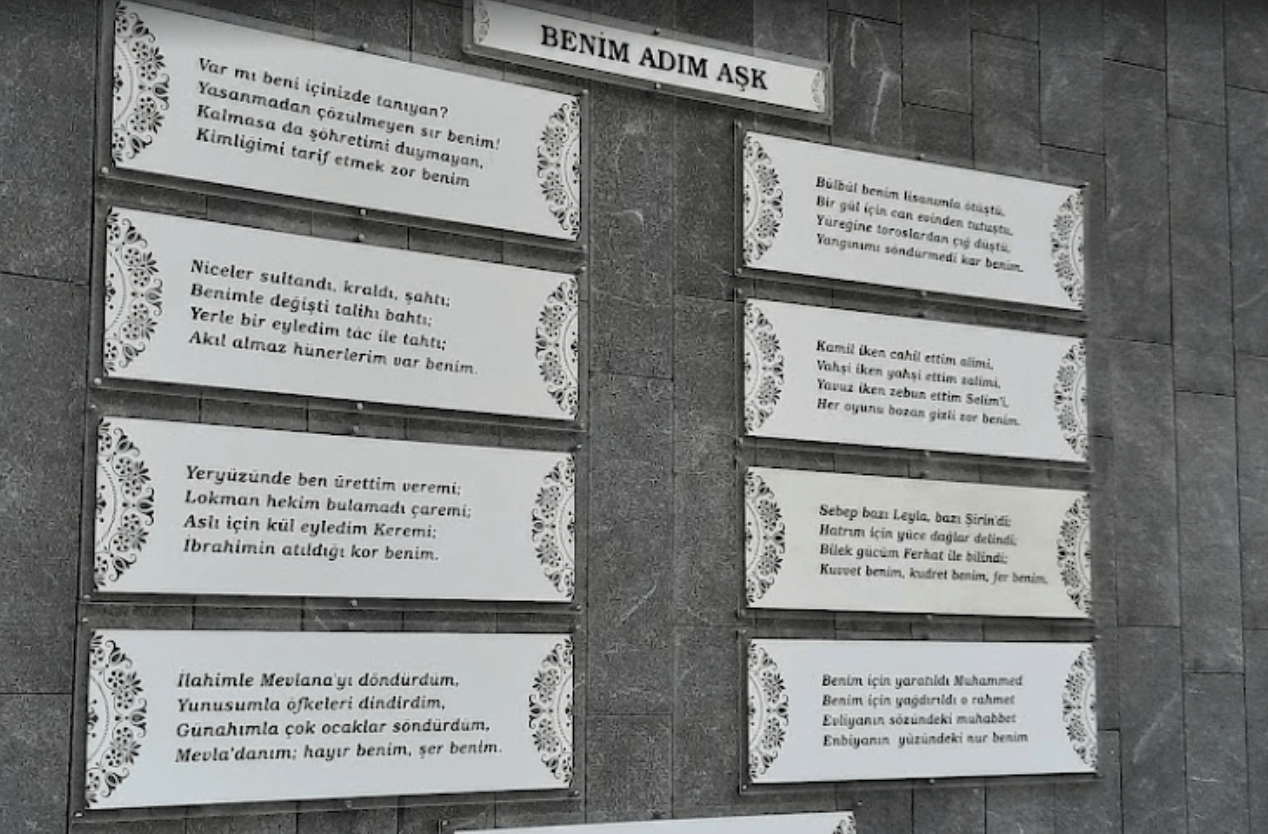 BENİM ADIM AŞK
Var mı beni içinizde tanıyan?
Yasanmadan çözülmeyen sır benim!
Kalmasa da şöhretimi duymayan,
Kimliğimi tarif etmek zor benim
Niceler sultandı, kraldı, şahtı;
Benimle değişti talihı bahtı;
Yerle bir eyledim tác ile tahtı;
Akıl almaz hünerlerim var benim.
Yeryüzünde ben ürettim veremi;
Lokman hekim bulamadı çaremi;
Aslı için kül eyledim Keremi;
İbrahimin atıldığı kor benim.
İlahimle Mevlana'yı döndürdüm,
Yunusumla öfkeleri dindirdim,
Günahımla çok ocaklar söndürdüm,
Mevla'danım; hayır benim, şer benim.
Bülbül benim lisanımla ötüştü,
Bir gül için can evinden tutuştu,
Yüreğine toroslardan çığ düştü,
Yangınımı söndürmedi kar benim.
Kamil iken cahil ettim alimi,
Vahşi iken yahşi ettim zalimi,
Yavuz iken zebun ettim Selim'i,
Her oyunu bozan gizli zor benim.
Sebep bazı Leyla, bazı Şirin'di;
Hatrım için yüce dağlar delindi;
Bilek gücüm Ferhat ile bilindi;
Kuvvet benim, kudret benim, fer benim.
Benim için yaratıldı Muhammed
Benim için yağdırıldı o rahmet
Evliyanın sözündeki muhabbet
Enbiyanın yüzündeki nur benim